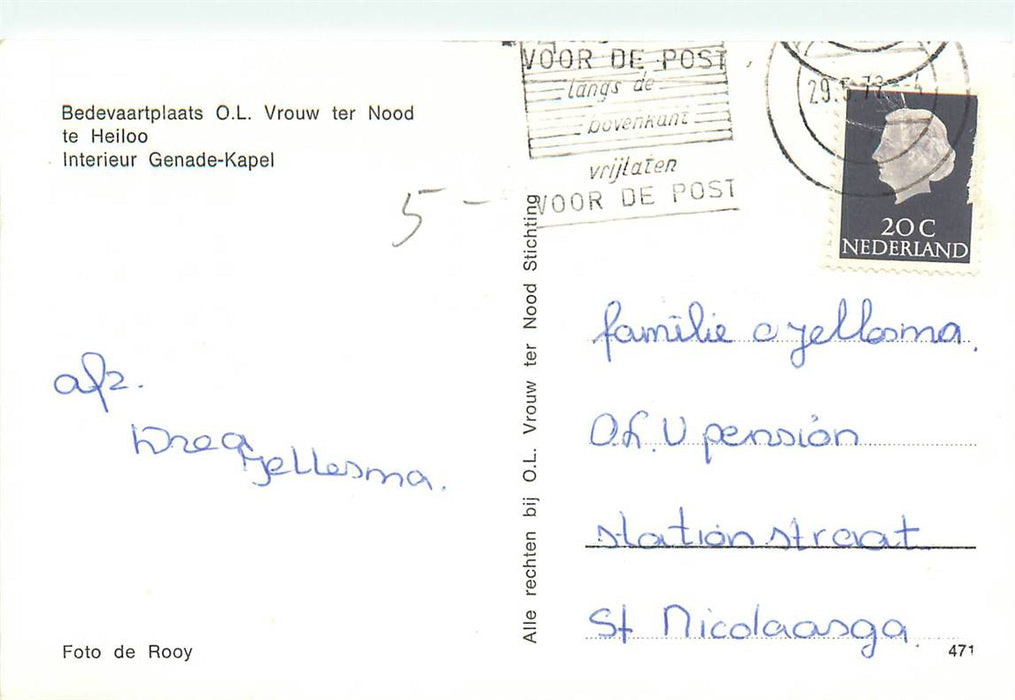 Bedevaartplaats O.L. Vrouw ter Nood
te Heiloo
Interieur Genade-Kapel
VOOR DE POST
langs de
bovenkant
vrijlaten
VOOR DE POST
20 C
NEDERLAND
5 -
afz.
Jellesma.
Alle rechten bij O.L. Vrouw ter Nood Stichting
familie Jellesma.
O.L.V pension
stationstraat
St Nicolaasga.
Foto de Rooy
471